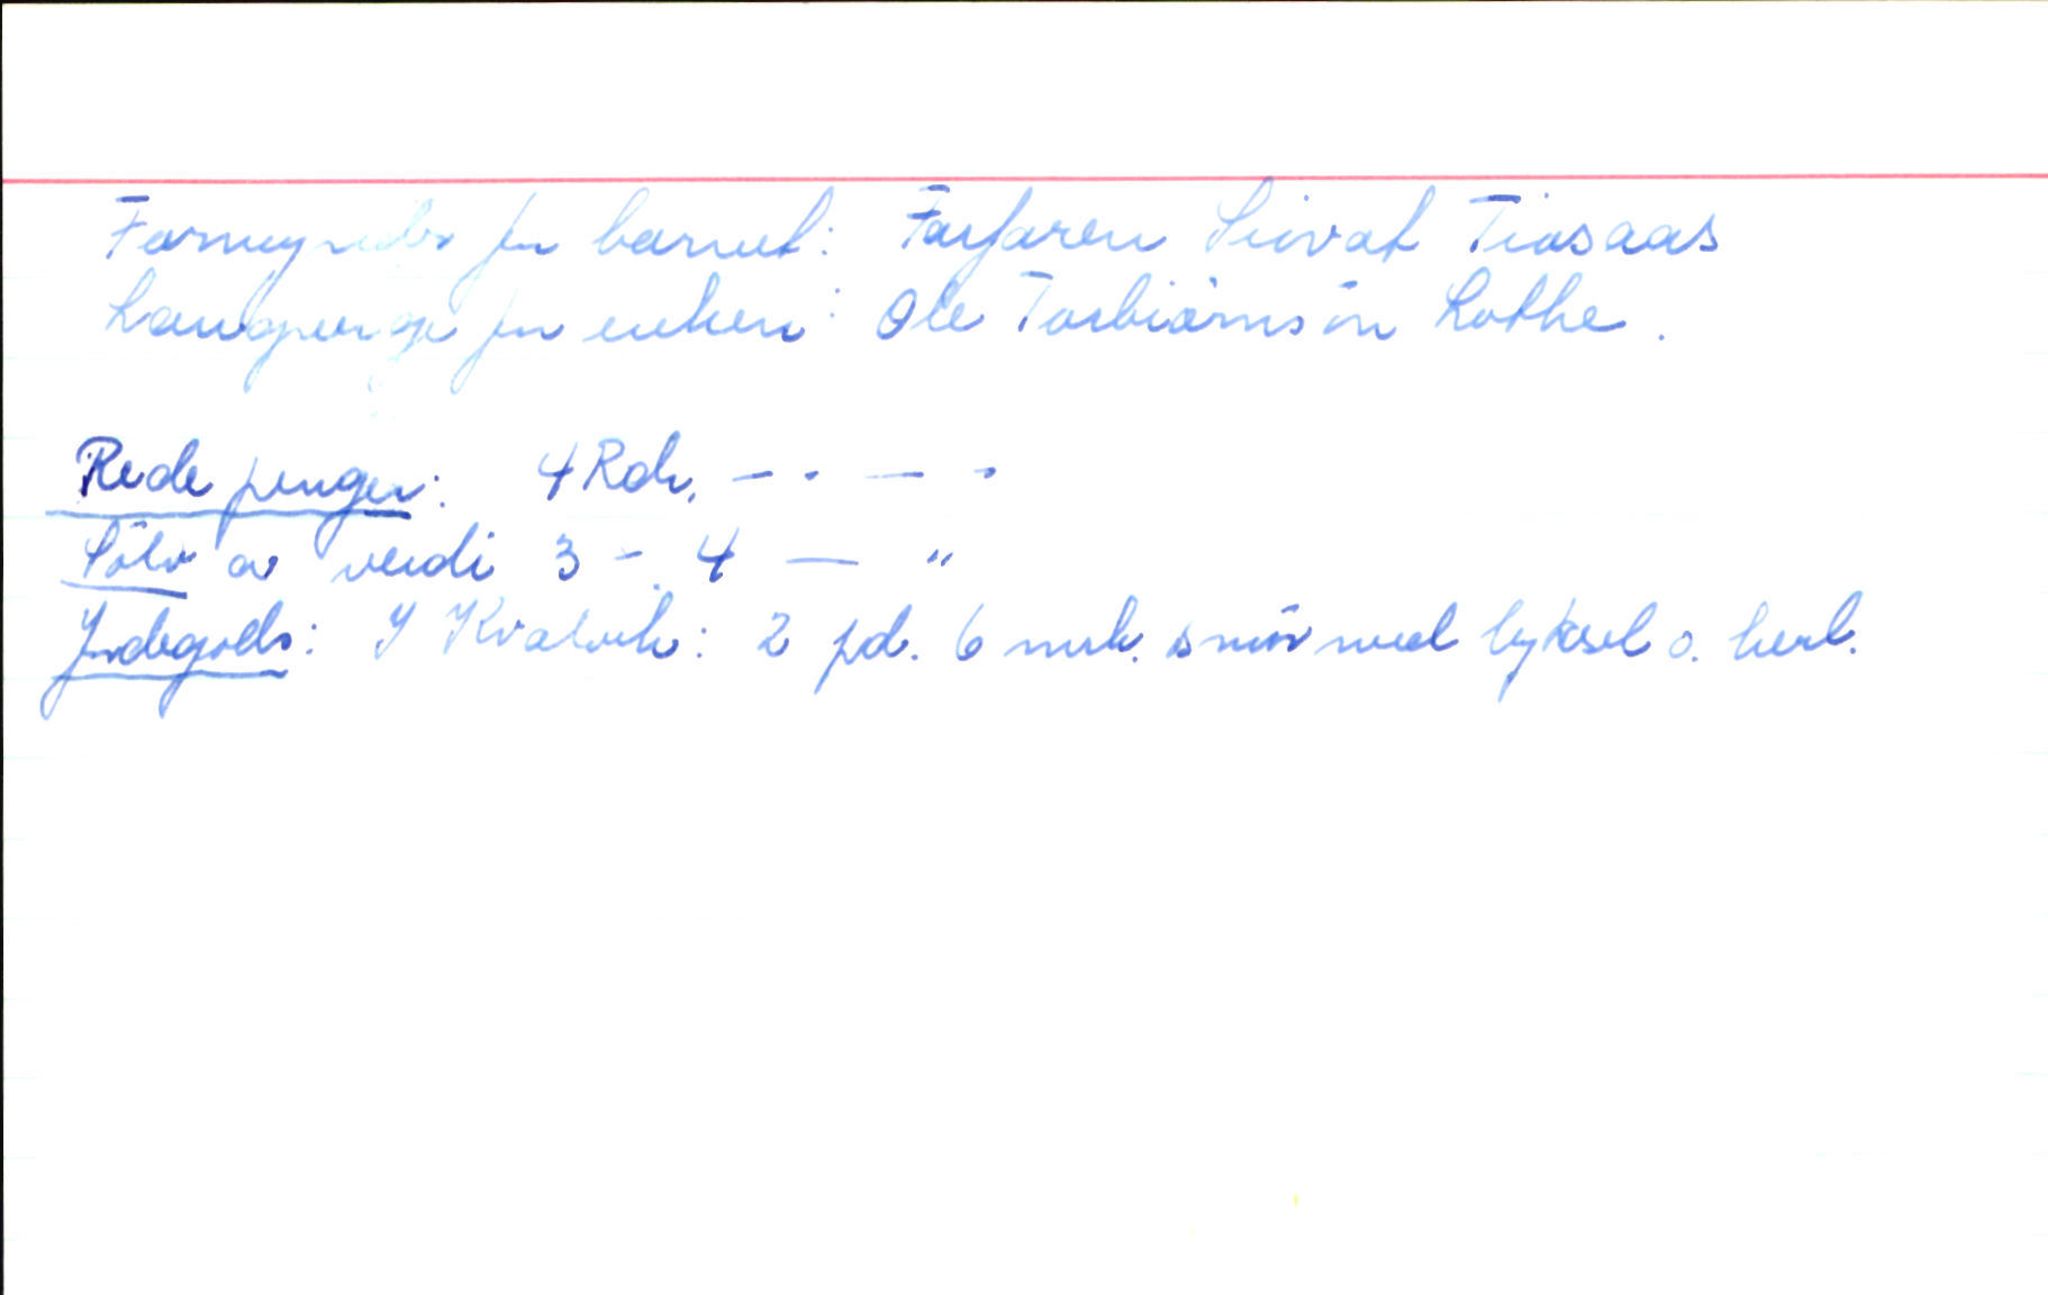 Formynder for barnet: Farfaren Sivat Tiosaas
Laugverge for enken: Ole Torbiörnsön Lothe.
Rede penger: 4 Rdr. - . - -
Sölv av verdi 3 - . 4 - "
Jordegods: I Kvalvik: 2 pd. 6 mrk. smör med byksel o. herl.